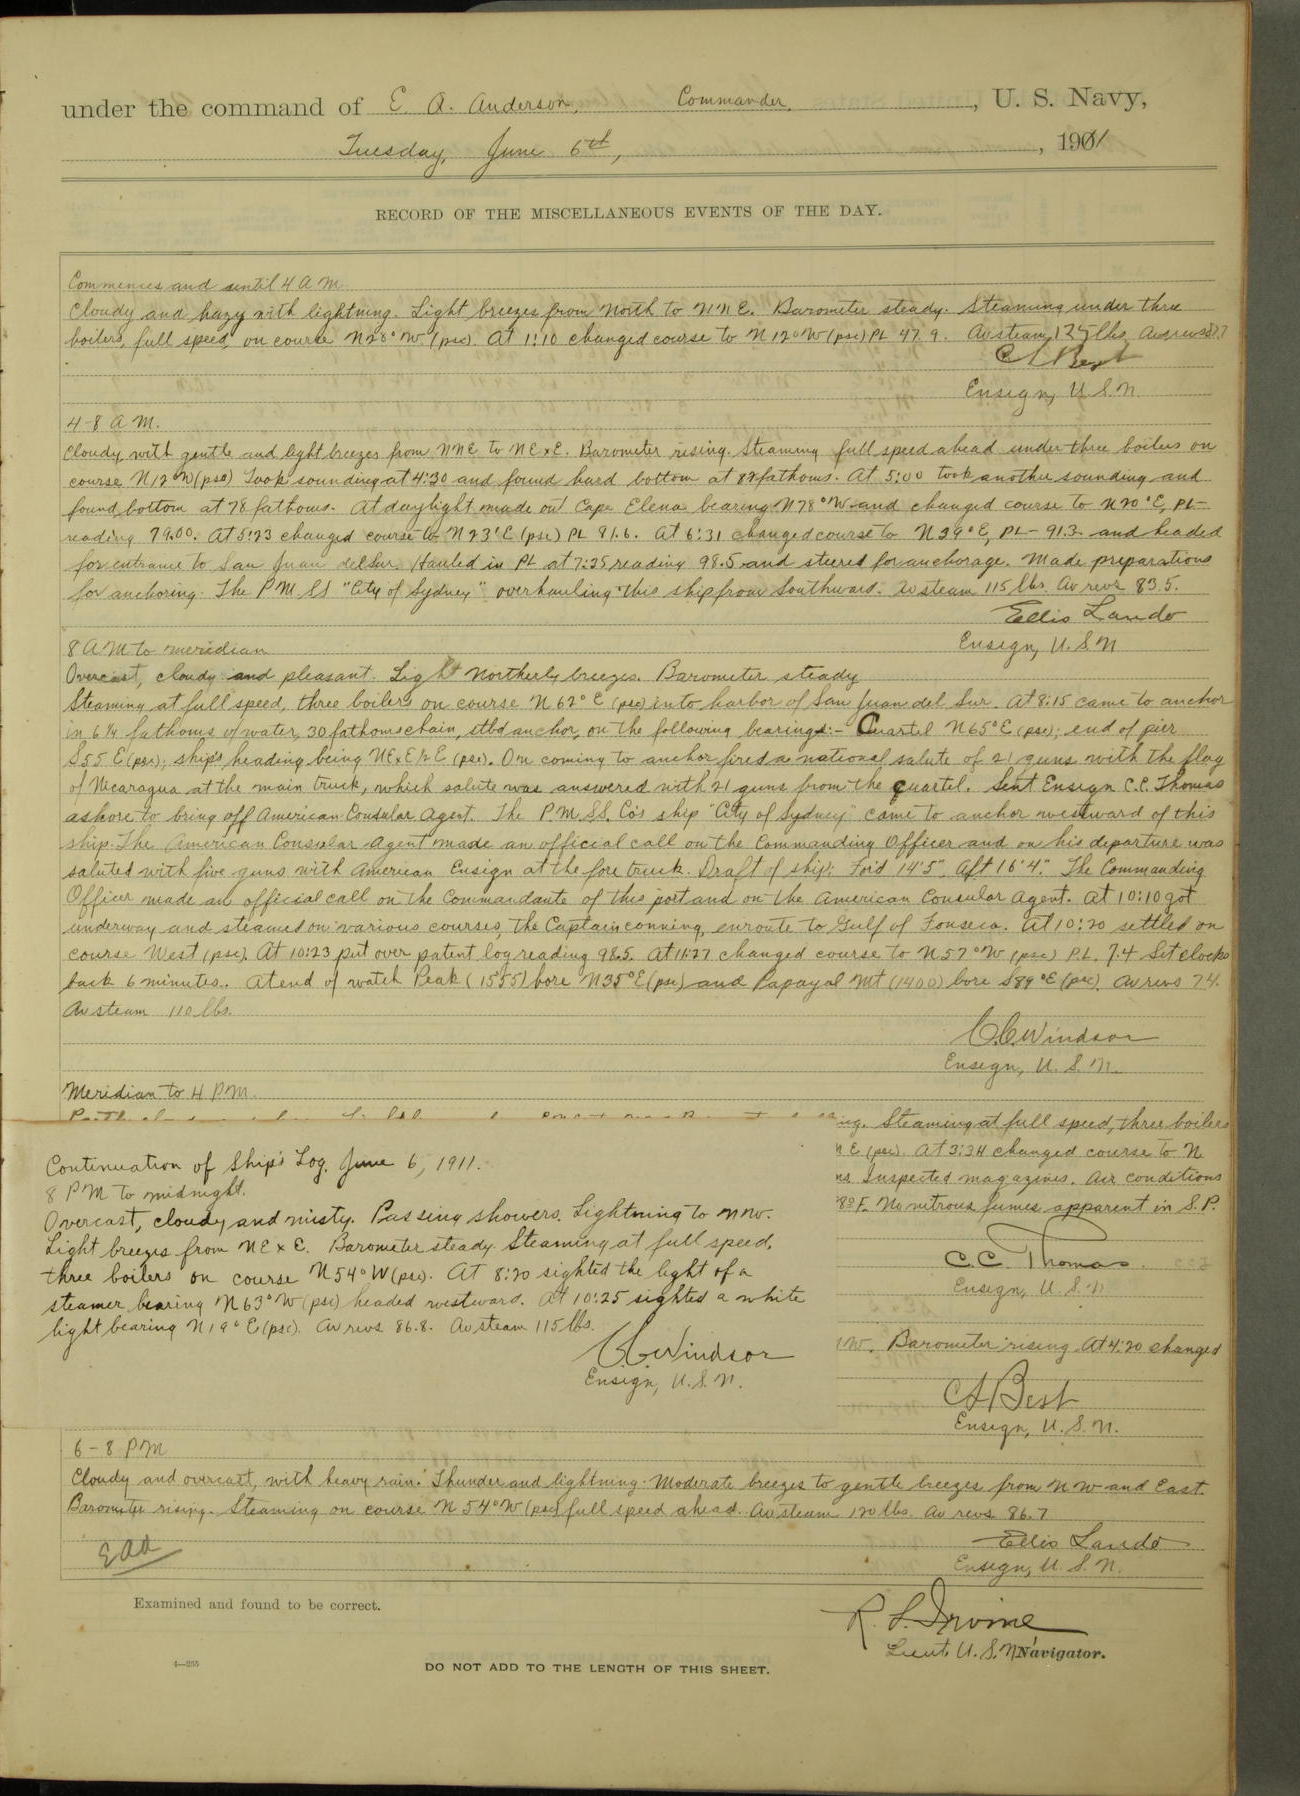 under the command of E A. Anderson, Commander, , U. S. Navy,
Tuesday, June 6th, , 1901
RECORD OF THE MISCELLANEOUS EVENTS OF THE DAY.
Commences and until 4 A M.
Cloudy and hazy with lightning. Light breezes from North to NNE. Barometer steady. Steaming under three
boilers, full speed, on course N28°W (psc). At 1:10 changed course to N12°W (psc) PL 47.9. Av steam 125 lbs. Av revs
C A Best
Ensign, U.S.N.
4-8 A M.
Cloudy with gentle and light breezes from NNE to NExE. Barometer rising. Steaming full speed ahead under three boilers on
course N12°W (psc) Took sounding at 4:30 and found hard bottom at 82 fathoms. At 5:00 took another sounding and
found bottom at 78 fathoms. At daylight made out Cape Elena bearing N78°W and changed course to N20°E, PL-
reading 79.00. At 5:23 changed course to N23°E (psc) PL 81.6. At 6:31 changed course to N39°E, PL- 91.3 and headed
for entrance to San Juan del Sur. Hauled in PL at 7:25 reading 98.5 and steered for anchorage. Made preparations
for anchoring. The P M SS "City of Sydney" overhauling this ship from Southward. Av steam 115 lbs. Av revs 83.5.
Ellis Lando
Ensign, U.S.N
8 A M to meridian
Overcast, cloudy and pleasant. Light Northerly breezes. Barometer steady
Steaming at full speed, three boilers on course N62°E (psc) into harbor of San Juan del Sur. At 8:15 came to anchor
in 6¼ fathoms of water, 30 fathoms chain, stbd anchor, on the following bearings:- Cuartel N65°E (psc); end of pier
S55E (psc); ship's heading being NExE½E (psc). On coming to anchor fired a national salute of 21 guns with the flag
of Nicaragua at the main truck, which salute was answered with 21 guns from the cuartel. Sent Ensign C.C. Thomas
ashore to bring off American Consular Agent. The P.M.SS. Co's ship "City of Sydney" came to anchor westward of this
ship. The American Consular Agent made an official call on the Commanding Officer and on his departure was
saluted with five guns with American Ensign at the fore truck. Draft of ship: For'd 14'5", Aft 16'4." The Commanding
Officer made an official call on the Commandante of this port and on the American Consular Agent. At 10:10 got
underway and steamed on various courses, the Captain conning, enroute to Gulf of Fonseca. At 10:20 settled on
course West (psc). At 10:23 put over patent log reading 98.5. At 11:27 changed course to N57°W (psc) P.L. 7.4 Set clocks
back 6 minutes. At end of watch Peak (1555) bore N35°E (psc) and Papayal Mt (1400) bore S89°E (psc). Av revs 74.
Av steam 110 lbs.
C.C. Windsor
Ensign, U.S.N.
Meridian to 4 P M.
ing. Steaming at full speed, three boilers
E (psc). At 3:34 changed course to N
Inspected magazines. Air conditions
No nitrous fumes apparent in S.P.
C.C. Thomas.
Ensign, U.S.N
W. Barometer rising. At 4:20 changed
C A Best
Ensign, U.S.N.
Continuation of Ship's Log, June 6, 1911.
8 P M to midnight.
Overcast, cloudy and misty. Passing showers. Lightning to NNW.
Light breezes from NExE. Barometer steady. Steaming at full speed,
three boilers on course N54°W (psc). At 8:20 sighted the light of a
steamer bearing N63°W (psc) headed westward. At 10:25 sighted a white
light bearing N19°E (psc). Av revs 86.8. Av steam 115 lbs.
C.C. Windsor
Ensign, U.S.N.
6-8 P M
Cloudy and overcast, with heavy rain. Thunder and lightning. Moderate breezes to gentle breezes from NW and East.
Barometer rising. Steaming on course N 54°W (psc) full speed ahead. Av steam 120 lbs. Av revs 86.7
Ellis Lando
Ensign, U.S.N.
EAA
Examined and found to be correct.
R. L. Irvine
Lieut. U.S.N. Navigator.
4—255
DO NOT ADD TO THE LENGTH OF THIS SHEET.